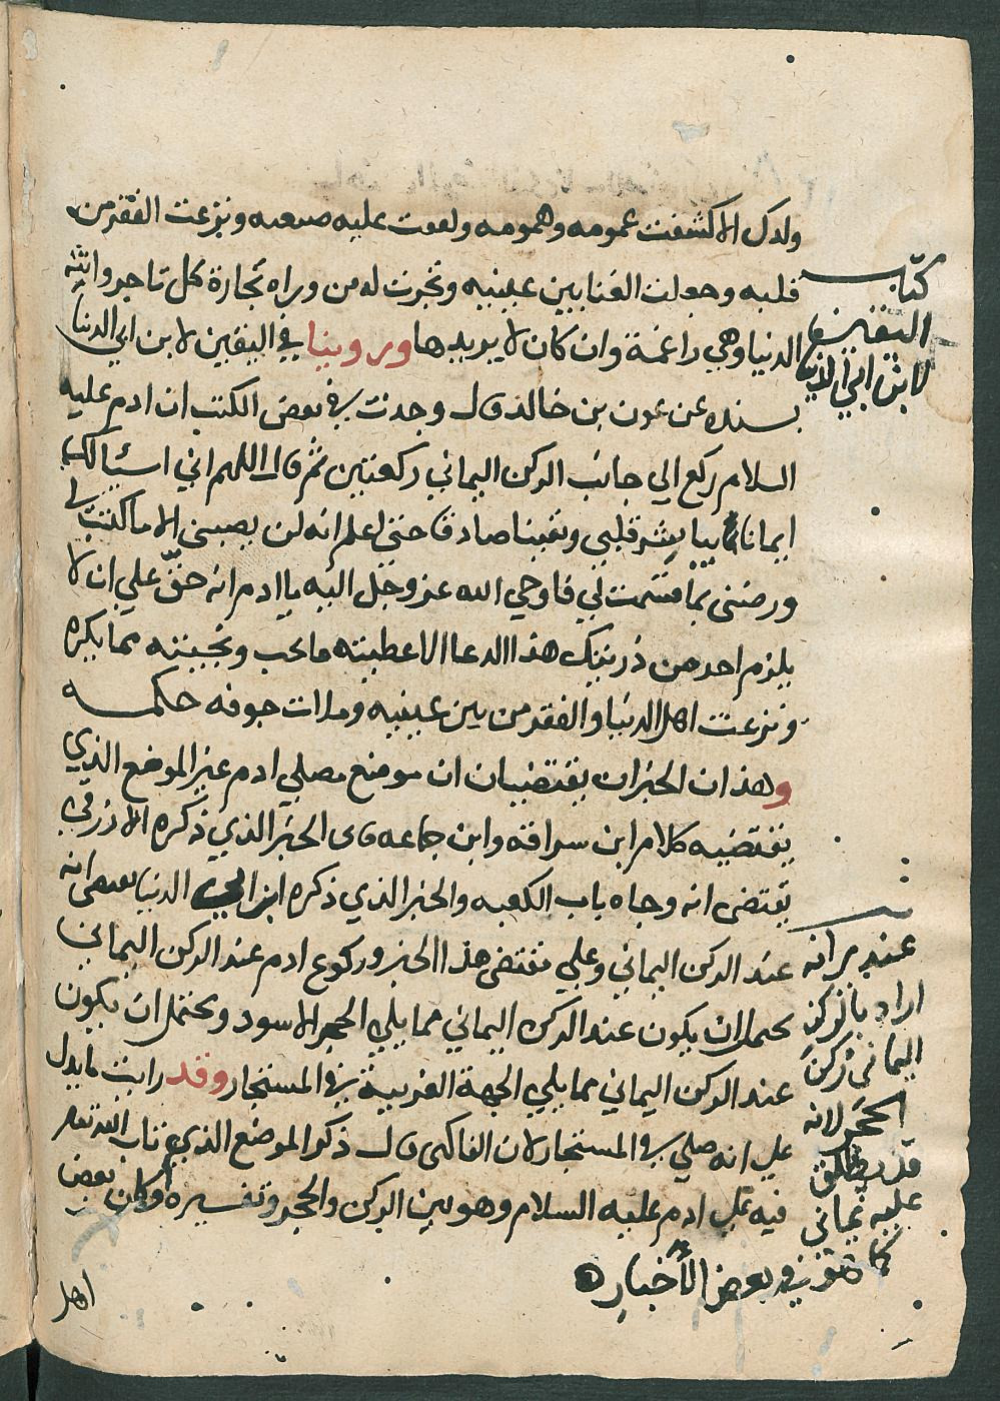 ولدك الا كشفت غمومه وهمومه وكففت عليه ضيعته ونزعت الفقر من
قلبه وجعلت الغنا بين عينيه وتجرت له من وراء تجارة كل تاجر واتته
الدنيا وهي راغمة وان كان لا يريدها وروينا في اليقين لابن ابي الدنيا
بسنده عن عون بن خالد قال وجدت في بعض الكتب ان ادم عليه
السلام ركع الي جانب الركن اليماني ركعتين ثم قال اللهم اني اسئالك
ايمانا يباشر قلبي ويقينا صادقا حتى اعلم انه لن يصيبني الا ما كتبت لي
ورضني بما قسمت لي فاوحي الله عز وجل اليه يا ادم انه حق علي ان لا
يلزم احد من ذريتك هذا الدعا الا اعطيته ما يحب ونجيته مما يكره
ونزعت اهل الدنيا والفقر من بين عينيه وملات جوفه حكمه
وهذان الخبران يقتضيان ان موضع مصلي ادم غير الموضع الذي
يقتضيه كلام ابن سراقة وابن جماعه فان الخبر الذي ذكره الازرقي
يقتضى انه وجاه باب الكعبه والخبر الذي ذكره ابن ابي الدنيا يقتضى انه
عند الركن اليماني وعلي مقتضى هذا الخبر وركوع ادم عند الركن اليماني
يحتمل ان يكون عند الركن اليماني مما يلي الحجر الاسود ويحتمل ان يكون
عند الركن اليماني مما يلي الجهة الغربية في المستجار وقد رايت ما يدل
على انه صلي في المستجار لان الفاكهى قال ذكر الموضع الذي تاب الله تعالى
فيه على ادم عليه السلام وهو بين الركن والحجر وتفسيره وكان بعض
اهل
كتاب
اليقين
لابن ابي الدنيا
عندي انه
اراد بالركن
اليماني ركن
الحجر لانه
قد يطلق
عليه يماني
كما هو في بعض الأخبار